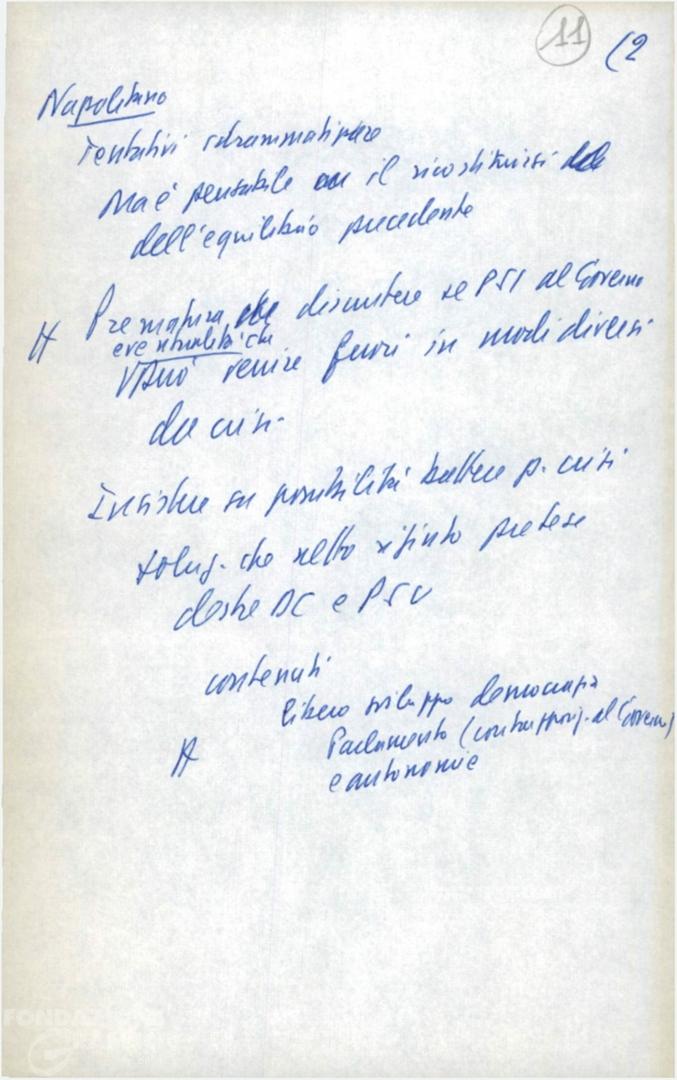 11 (2
Napolitano
Tentativi sdrammatizzare
Ma è pensabile il ricostituirsi
dell'equilibrio precedente
Prematura discutere se PSI al Governo
eventualità che
può venire fuori in modi diversi
da crisi.
Insistere su possibilità battere p. crisi
soluz. che netto rifiuto pretese
destre DC e PSU
contenuti
libero sviluppo democrazia
Parlamento (contrappos. al Governo)
e autonomie
FONDAZIONE